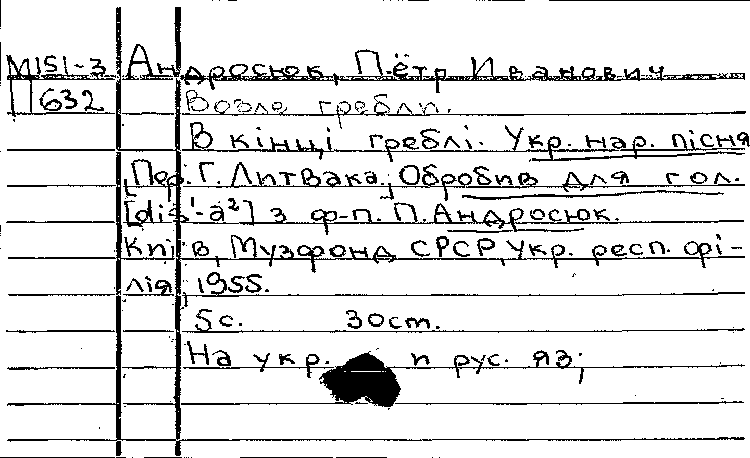 М151-3 Андросюк, Пётр Иванович
П632 Возле гребли.
В кінці греблі. Укр. нар. пісня
[Пер. Г. Литвака.] Обробив для гол.
[dis¹-a²] з ф-п. П. Андросюк.
Київ, Музфонд СРСР, Укр. респ. філія, 1955.
5с. 30ст.
На укр. и рус. яз;